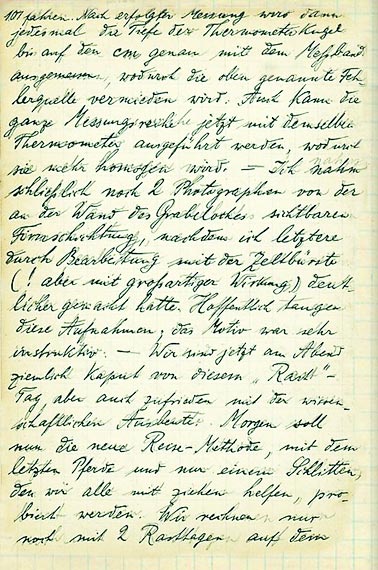 fahren. Nach erfolgter Messung wird dann
jedesmal die Tiefe der Thermometerkugel
bis auf den cm genau mit dem Meßband
ausgemessen, wodurch die oben genannte Feh-
lerquelle vermieden wird. Auch kann die
ganze Messungsreihe jetzt mit demselben
Thermometer ausgeführt werden, wodurch
sie mehr homogen wird. — Ich nahm
schließlich noch 2 Photographien von der
an der Wand des Grabeloches sichtbaren
Firnschichtung, nachdem ich letztere
durch Bearbeitung mit der Zeltbürste
(! aber mit großartiger Wirkung) deut-
licher gemacht hatte. Hoffentlich taugen
diese Aufnahmen; das Motiv war sehr
instruktiv. — Wir sind jetzt am Abend
ziemlich kaput von diesem „Rast"-
Tag aber auch zufrieden mit der wissen-
schaftlichen Ausbeute. Morgen soll
nun die neue Reise-Methode, mit dem
letzten Pferde und nur einem Schlitten,
den wir alle mit ziehen helfen, pro-
biert werden. Wir rechnen nur
noch mit 2 Rasttagen auf dem